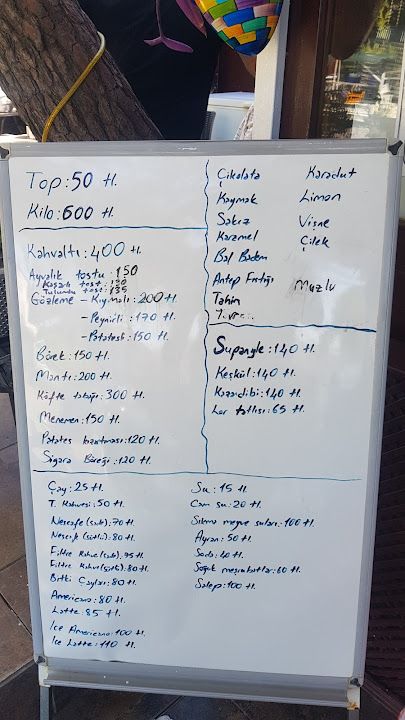 Top: 50 tl.
Kilo: 600 tl.
Çikolata Karadut
Kaymak Limon
Sakız Vişne
Karamel Çilek
Bal Badem
Antep Fıstığı Muzlu
Tahin
Kahvaltı: 400 tl.
Ayvalık tostu: 150
Kaşarlı tost: 130
Tulumlu tost: 135
Gözleme - Kıymalı: 200 tl.
- Peynirli: 170 tl.
- Patatesli: 150 tl.
Börek: 150 tl.
Mantı: 200 tl.
Köfte tabağı: 300 tl.
Menemen: 150 tl.
Patates kızartması: 120 tl.
Sigara Böreği: 120 tl.
Supangle: 140 tl.
Keşkül: 140 tl.
Kazandibi: 140 tl.
Lor tatlısı: 65 tl.
Çay: 25 tl.
T. Kahvesi: 50 tl.
Nescafe (sade): 70 tl.
Nescafe (sütlü): 80 tl.
Filtre Kahve (sade): 75 tl.
Filtre Kahve (sütlü): 80 tl.
Bitki Çayları: 80 tl.
Americano: 80 tl.
Latte: 85 tl.
Ice Americano: 100 tl.
Ice Latte: 110 tl.
Su: 15 tl.
Cam su: 20 tl.
Sıkma meyve suları: 100 tl.
Ayran: 50 tl.
Soda: 40 tl.
Soğuk meşrubatlar: 60 tl.
Salep: 100 tl.